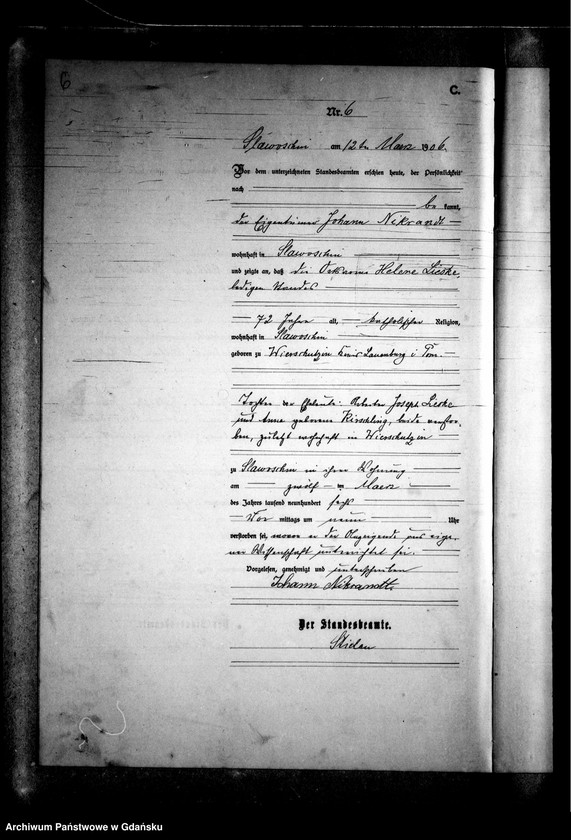 6
C.
Nr. 6
Slawoschin am 12ten Maerz 1906.
Vor dem unterzeichneten Standesbeamten erschien heute, der Persönlichkeit
nach
be kannt,
der Eigentümer Johann Nikrandt
wohnhaft in Slawoschin
und zeigte an, daß die Ortsarme Helene Lieske,
ledigen Standes
72 Jahre alt, katholischer Religion,
wohnhaft in Slawoschin
geboren zu Wierschutzin Kreis Lauenburg i Pom.
Tochter der Eheleute: Arbeiter Joseph Lieske
und Anna geborene Kirschling, beide verstor-
ben, zuletzt wohnhaft in Wierschutzin
zu Slawoschin in ihrer Wohnung
am zwölften Maerz
des Jahres tausend neunhundert sechs
Vor mittags um neun Uhr
verstorben sei, wovon er der Anzeigende aus eige-
ner Wissenschaft unterrichtet sei.
Vorgelesen, genehmigt und unterschrieben
Johann Nikrandt.
Der Standesbeamte.
Archiwum Państwowe w Gdańsku